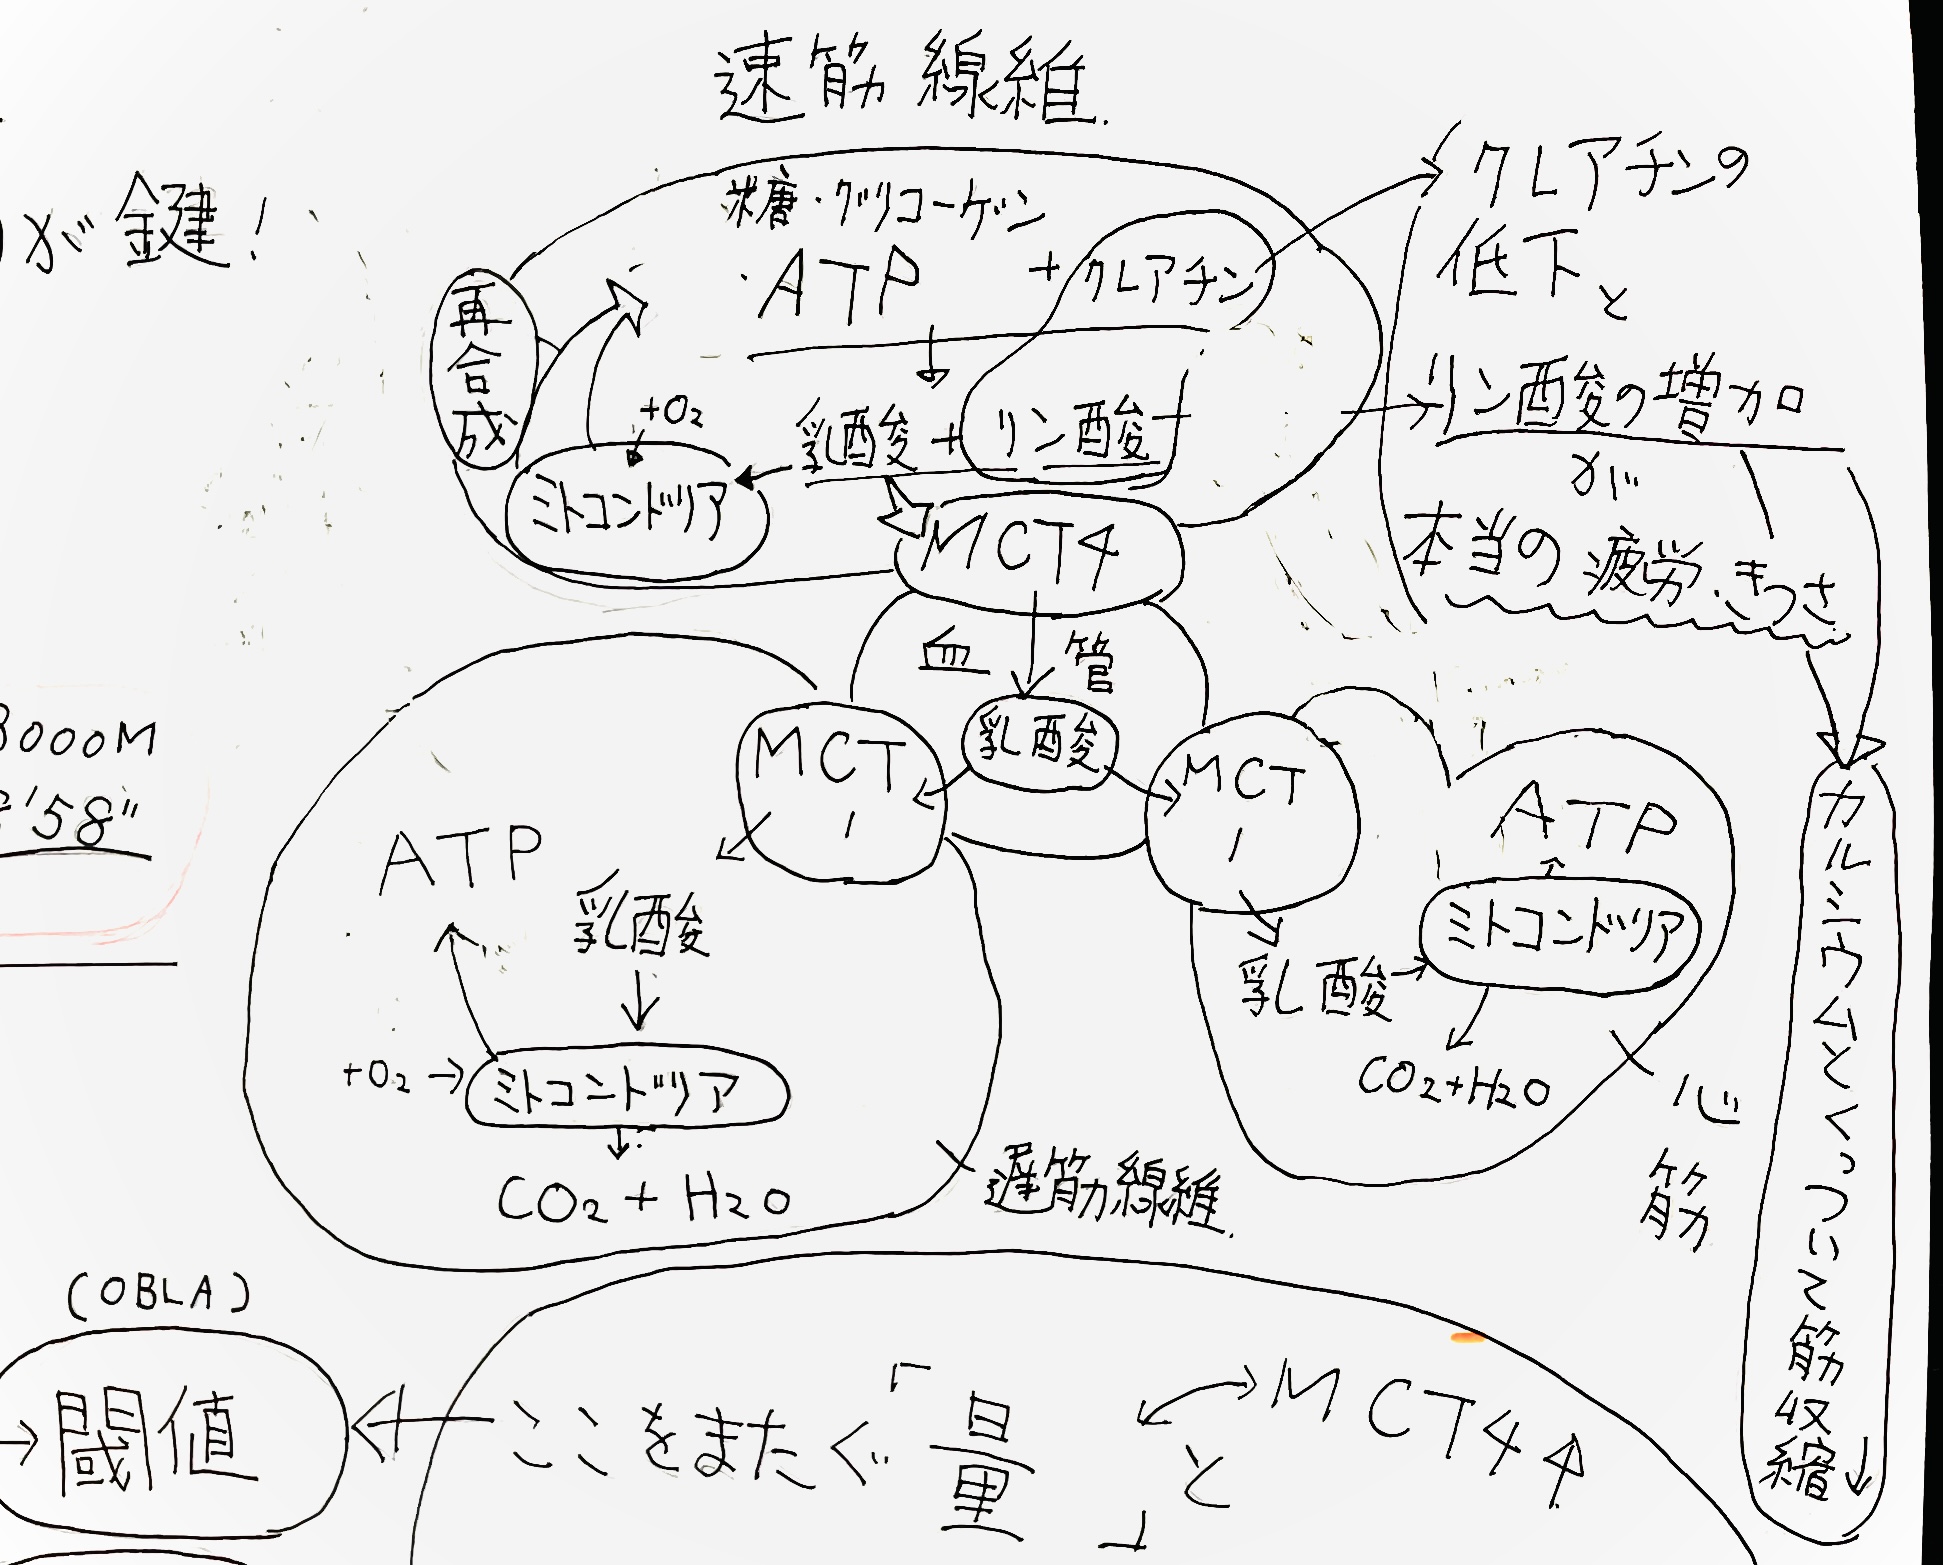 速筋線維.
が鍵!
糖・グリコーゲン
ATP + クレアチン
再合成
+O₂
乳酸 + リン酸
ミトコンドリア
MCT4
クレアチンの
低下と
リン酸の増加
が
本当の疲労・きつさ
血管
乳酸
MCT
1
MCT
1
3000M
'58"
ATP
乳酸
+O₂→
ミトコンドリア
CO₂ + H₂O
遅筋線維.
ATP
ミトコンドリア
乳酸
CO₂+H₂O
心筋
カルシウムとくっついて筋収縮↓
(OBLA)
→閾値
ここをまたぐ「量」と
MCT4↑